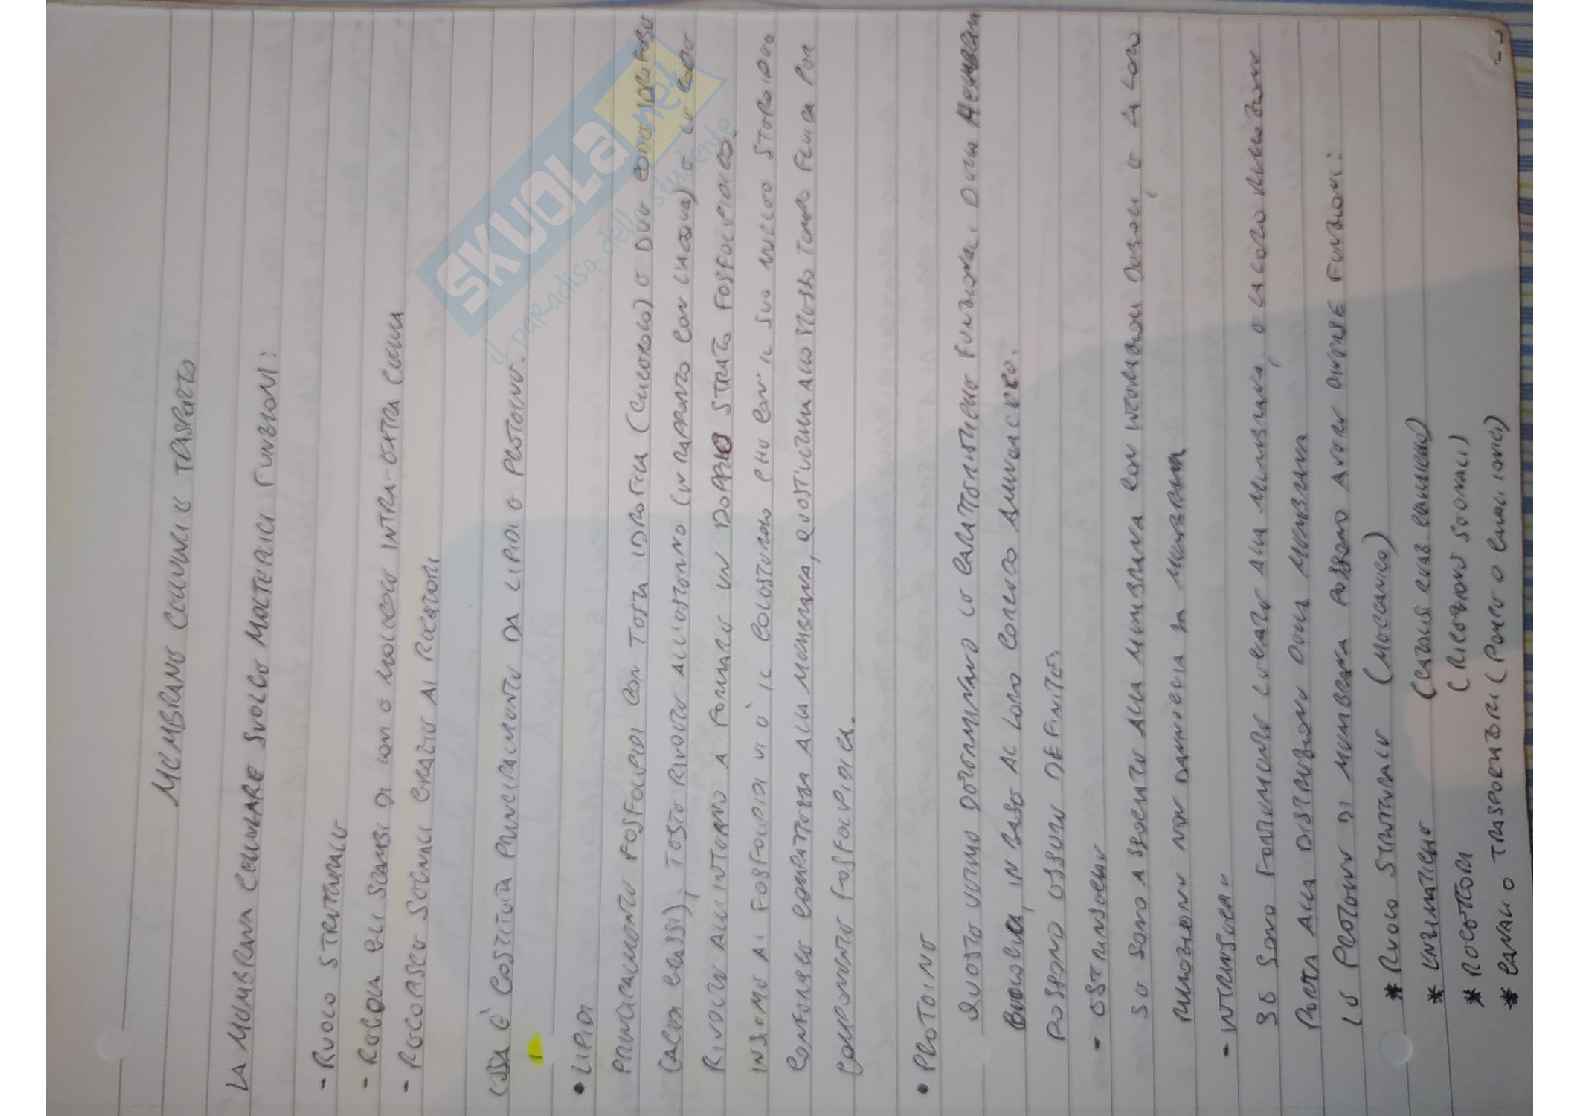 MEMBRANE CELLULARI E TRASPORTO
LA MEMBRANA CELLULARE SVOLGE MOLTEPLICI FUNZIONI:
- RUOLO STRUTTURALE
- REGOLA GLI SCAMBI DI IONI E MOLECOLE INTRA-EXTRA CELLULA
- RECEPISCE SEGNALI GRAZIE AI RECETTORI
ESSA È COSTITUITA PRINCIPALMENTE DA LIPIDI E PROTEINE.
• LIPIDI
PRINCIPALMENTE FOSFOLIPIDI CON TESTA IDROFILA (GLICEROLO) E DUE CODE IDROFOBE
(ACIDI GRASSI), TESTE RIVOLTE ALL'ESTERNO (IN RAPPORTO CON L'ACQUA) E LE CODE
RIVOLTE ALL'INTERNO A FORMARE UN DOPPIO STRATO FOSFOLIPIDICO.
INSIEME AI FOSFOLIPIDI VI È IL COLESTEROLO CHE CON IL SUO NUCLEO STEROIDEO
CONFERISCE COMPATTEZZA ALLA MEMBRANA, QUEST'ULTIMA ALLO STESSO TEMPO FLUIDA PER
COMPONENTE FOSFOLIPIDICA.
• PROTEINE
QUESTE ULTIME DETERMINANO LE CARATTERISTICHE FUNZIONALI DELLA MEMBRANA
BIOLOGICA, IN BASE AL LORO CORREDO AMMINOACIDICO.
POSSONO ESSERE DEFINITE:
- ESTRINSECHE
SE SONO ASSOCIATE ALLA MEMBRANA CON INTERAZIONI DEBOLI, E LA LORO
RIMOZIONE NON DANNEGGIA LA MEMBRANA
- INTRINSECHE
SE SONO FORTEMENTE LEGATE ALLA MEMBRANA, E LA LORO RIMOZIONE
PORTA ALLA DISTRUZIONE DELLA MEMBRANA
LE PROTEINE DI MEMBRANA POSSONO AVERE DIVERSE FUNZIONI:
* RUOLO STRUTTURALE (MECCANICO)
* ENZIMATICHE
* RECETTORI (RICEZIONE SEGNALI)
* CANALI O TRASPORTATORI
SKUOLA.net
il paradiso dello studente